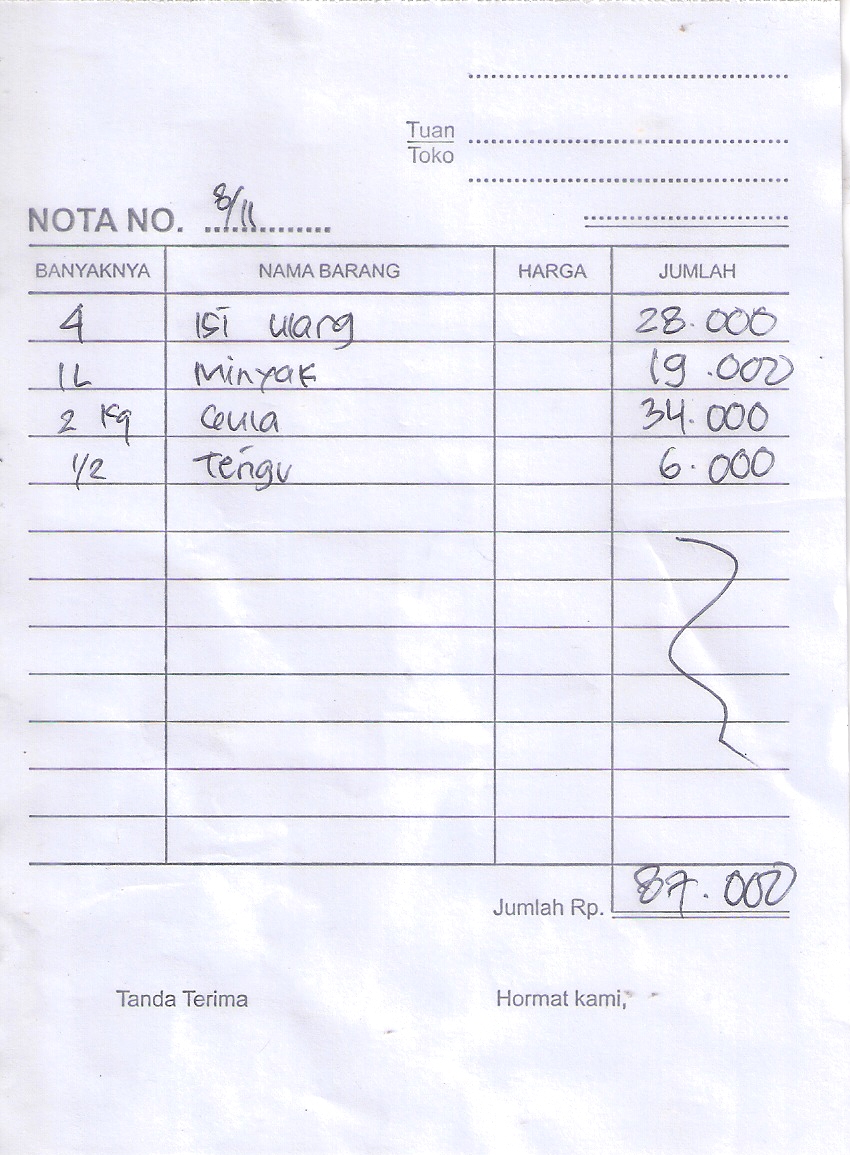 Tuan
Toko
NOTA NO. 8/11
BANYAKNYA NAMA BARANG HARGA JUMLAH
4 Isi ulang 28.000
1L Minyak 19.000
2 Kg Gula 34.000
1/2 Terigu 6.000
Jumlah Rp. 87.000
Tanda Terima Hormat kami,